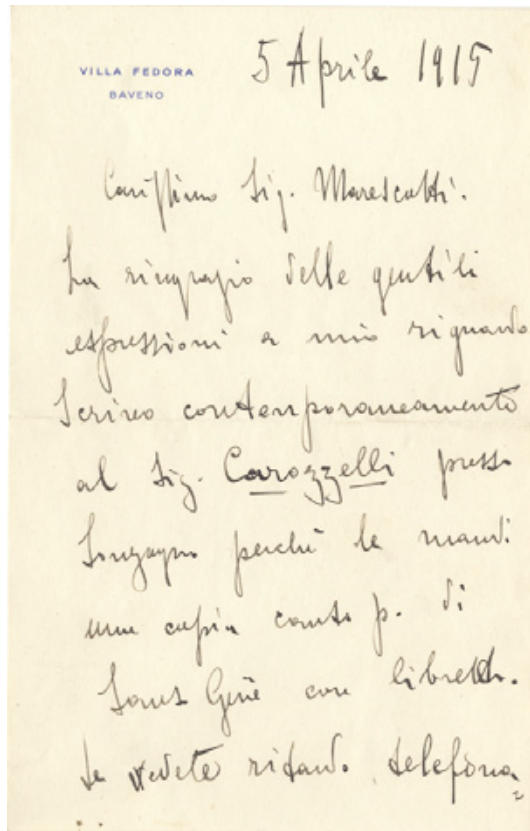 VILLA FEDORA
BAVENO
5 Aprile 1915
Carissimo Sig. Marescotti.
La ringrazio delle gentili
espressioni a mio riguardo
Scrivo contemporaneamente
al Sig. Carozzelli presso
Sonzogno perchè le mandi
una copia canto p. di
Sans Gêne con libretto.
Se vedete ritardo telefona=